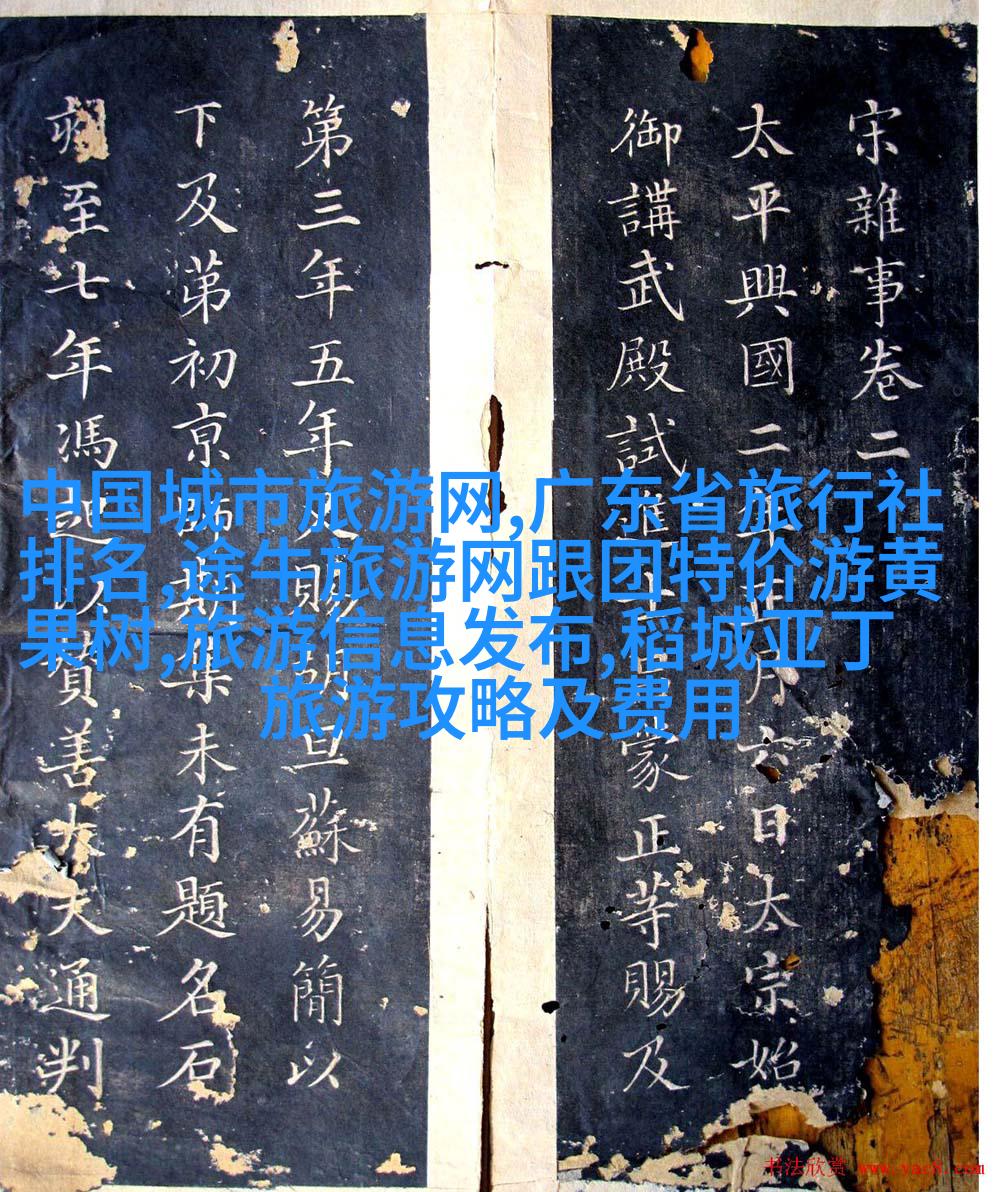 宋雜事卷二
太平興國二年正月六日太宗始
御講武殿試進士蒙正等賜及
第三年五年賜胡旦蘇易簡以
下及苐初京師期集未有題名石
刻至七年馮以賛善大夫通判
中国城市旅游网,广东省旅行社
排名,途牛旅游网跟团特价游黄
果树,旅游信息发布,稻城亚丁
旅游攻略及费用
书法欣赏 www.yac8.com